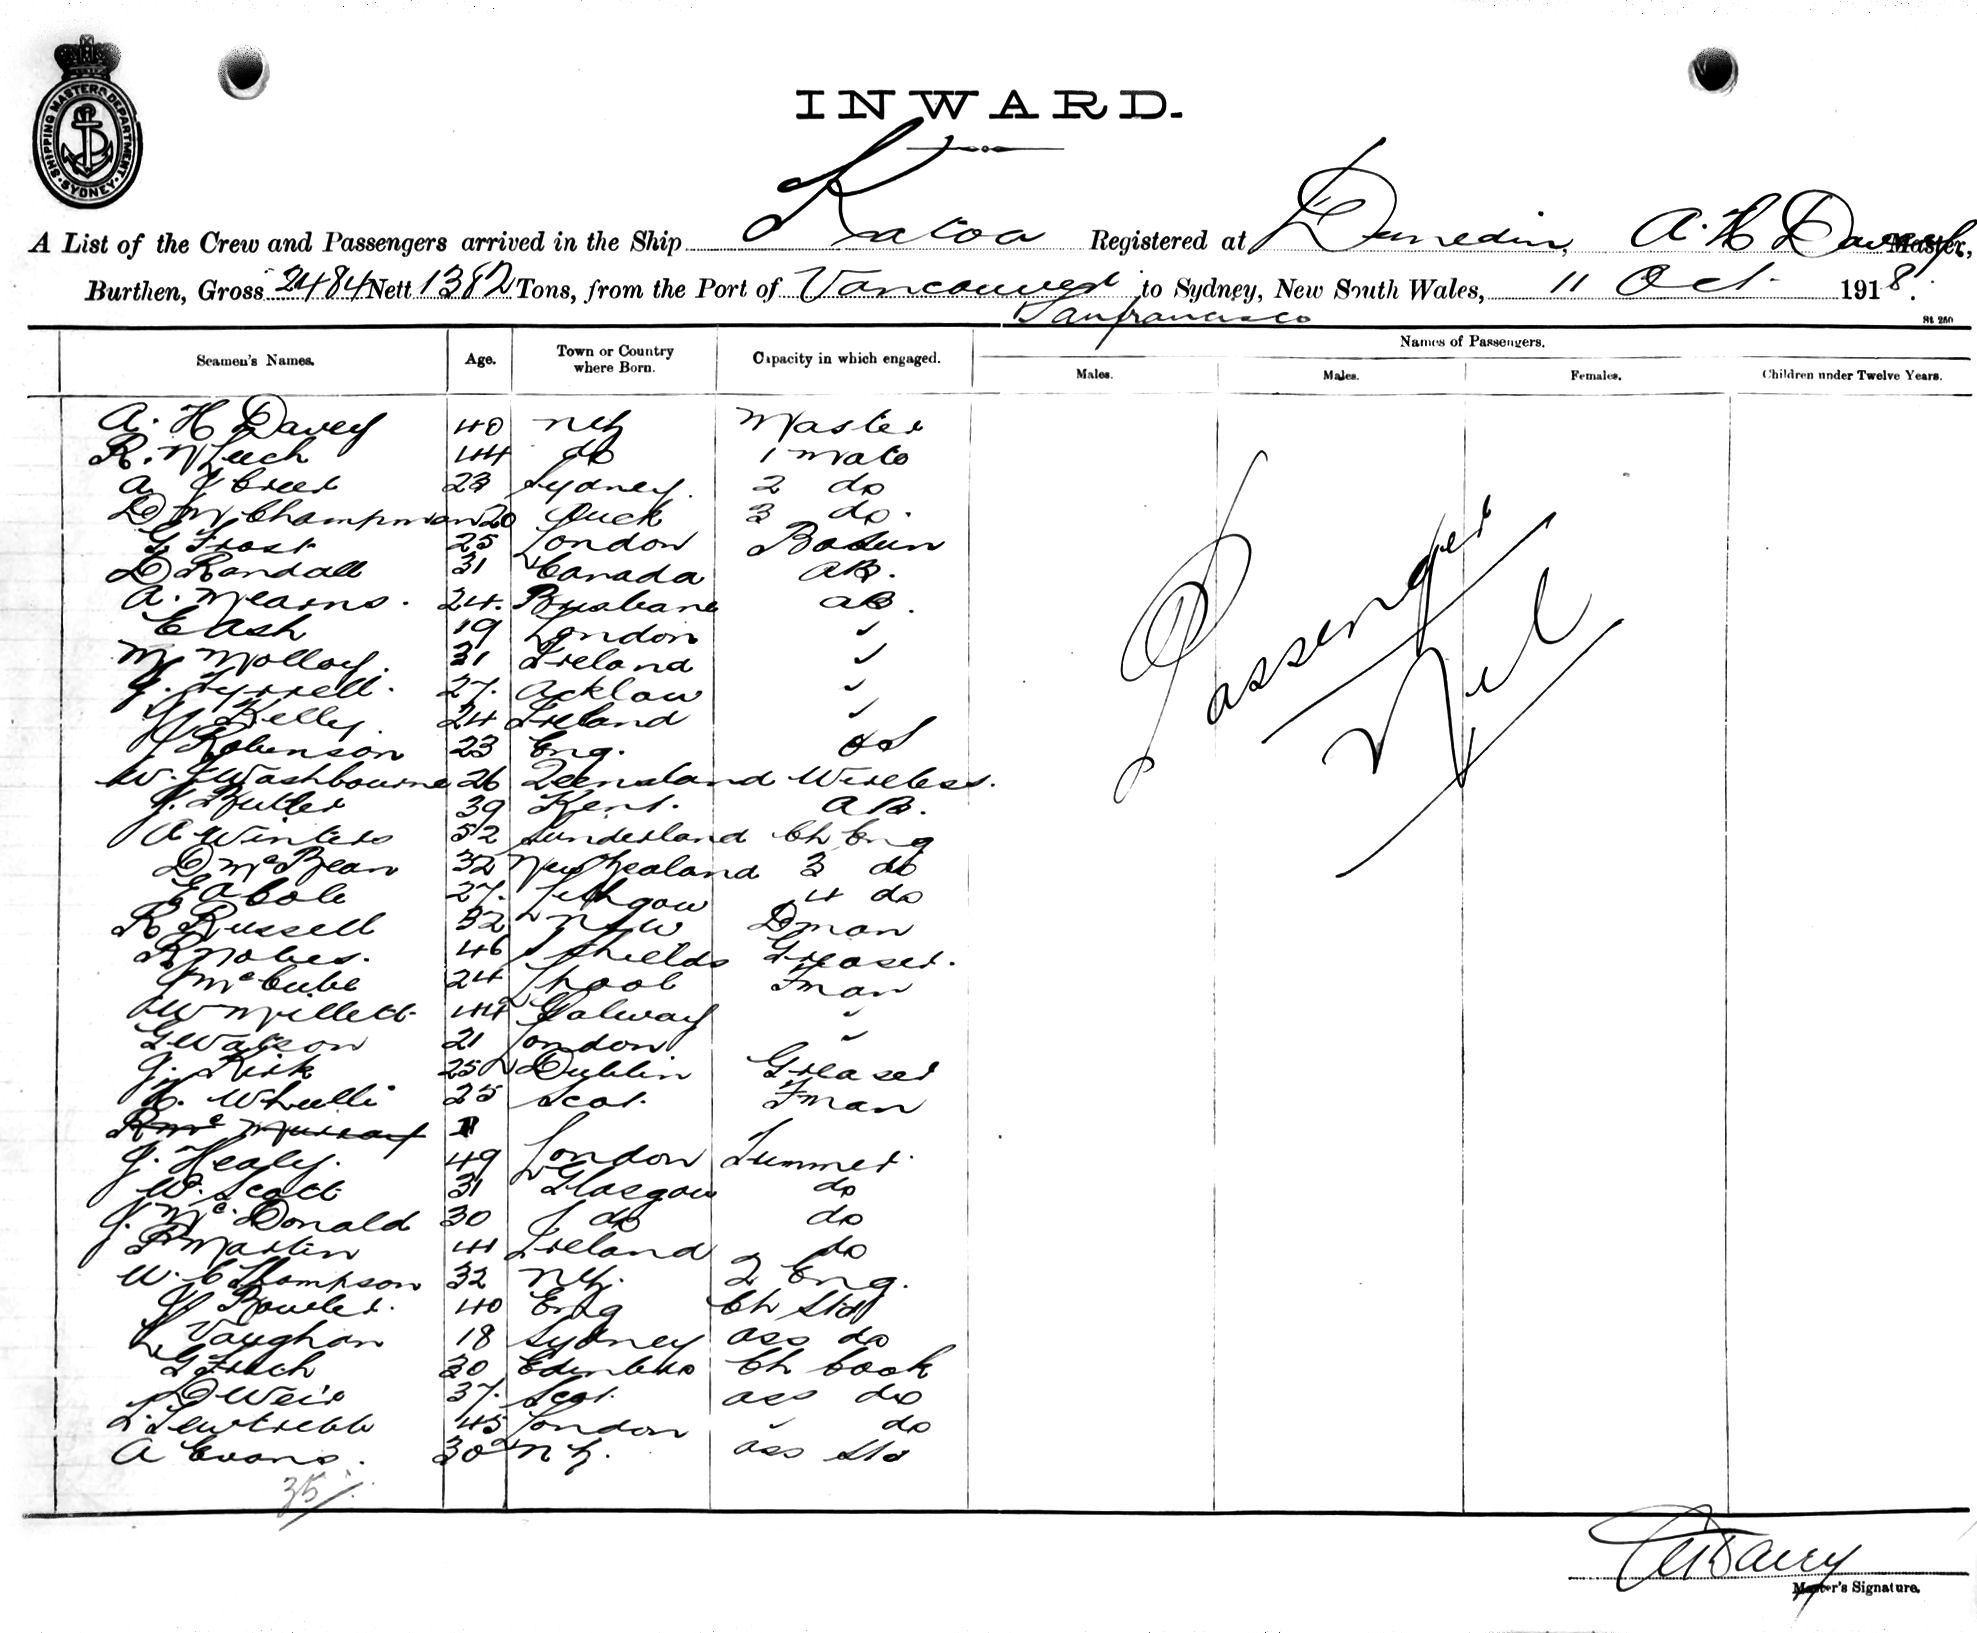 SHIPPING MASTERS DEPARTMENT
SYDNEY
INWARD.
A List of the Crew and Passengers arrived in the Ship Katoa Registered at Dunedin, A. H Davey Master,
Burthen, Gross 2484 Nett 1382 Tons, from the Port of Vancouver to Sydney, New South Wales, 11 Oct. 1918.
Sanfrancisco
St 260
Seamen's Names. Age. Town or Country where Born. Capacity in which engaged. Names of Passengers.
Males. Males. Females. Children under Twelve Years.
A. H Davey 40 NZ Master
R. 44 do 1 Mate
A J Creer 23 Sydney. 2 do
D M Champman 20 Auck 3 do.
G Frost 25 London Bosun
D Randall 31 Canada AB.
A. Mearns. 24. Brisbane AB.
E Ash 19 London "
M Molloy. 31 Ireland "
J. Tyrrell. 27. Acklow "
J Kelly. 24 Ireland "
J Robinson 23 Eng. OS
W. J Washbourne 26 Queensland Wireless.
J. Butler 39 Kent. AB.
A Winters 52 Sunderland Ch Eng
D McBean 32 New Zealand 3 do
E A Cole 27. Lithgow 4 do
R Russell 32 NSW Dman
R Nobes. 46 S Shields Greaser.
J McCube 24 Lpool Fman
W Millett 44 Galway "
G Watson 21 London "
J. Kirk 25 Dublin Greaser
25 Scot. Fman
R Mc Murray
J. Healy. 49 London Tummer
W. Scott 31 Glasgow do
J. Mc Donald 30 do do
P Martin 41 Ireland do
W. C Thompson 32 NZ. 2 Eng.
J Bowler. 40 Eng Ch Std
L Vaughan 18 Sydney ass do
G Fitch 30 Edinbro Ch Cook
D Weir 37. Scot. ass do
L. 45 London " do
A Evans. 30 NZ. ass Std
35/.
Passenger
Nil
AHDavey
Master's Signature.